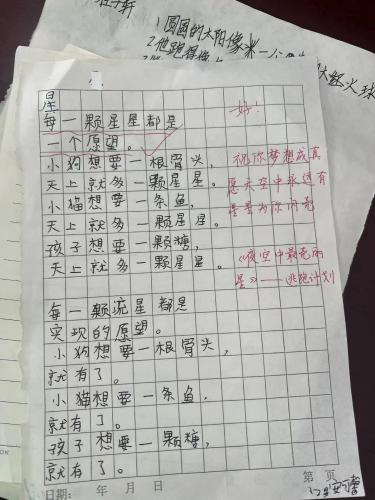 1.圆圆的太阳像
2.他跑得像
星
每一颗星星都是
一个愿望。
小狗想要一根骨头,
天上就多一颗星星。
小猫想要一条鱼,
天上就多一颗星星。
孩子想要一颗糖,
天上就多一颗星星。
每一颗流星都是
实现的愿望。
小狗想要一根骨头,
就有了。
小猫想要一条鱼.
就有了。
孩子想要一颗糖,
就有了。
好!
祝你梦想成真
愿天空中永远有
星星为你闪亮
《夜空中最亮的
星》——逃跑计划
第 页
日期: 年 月 日